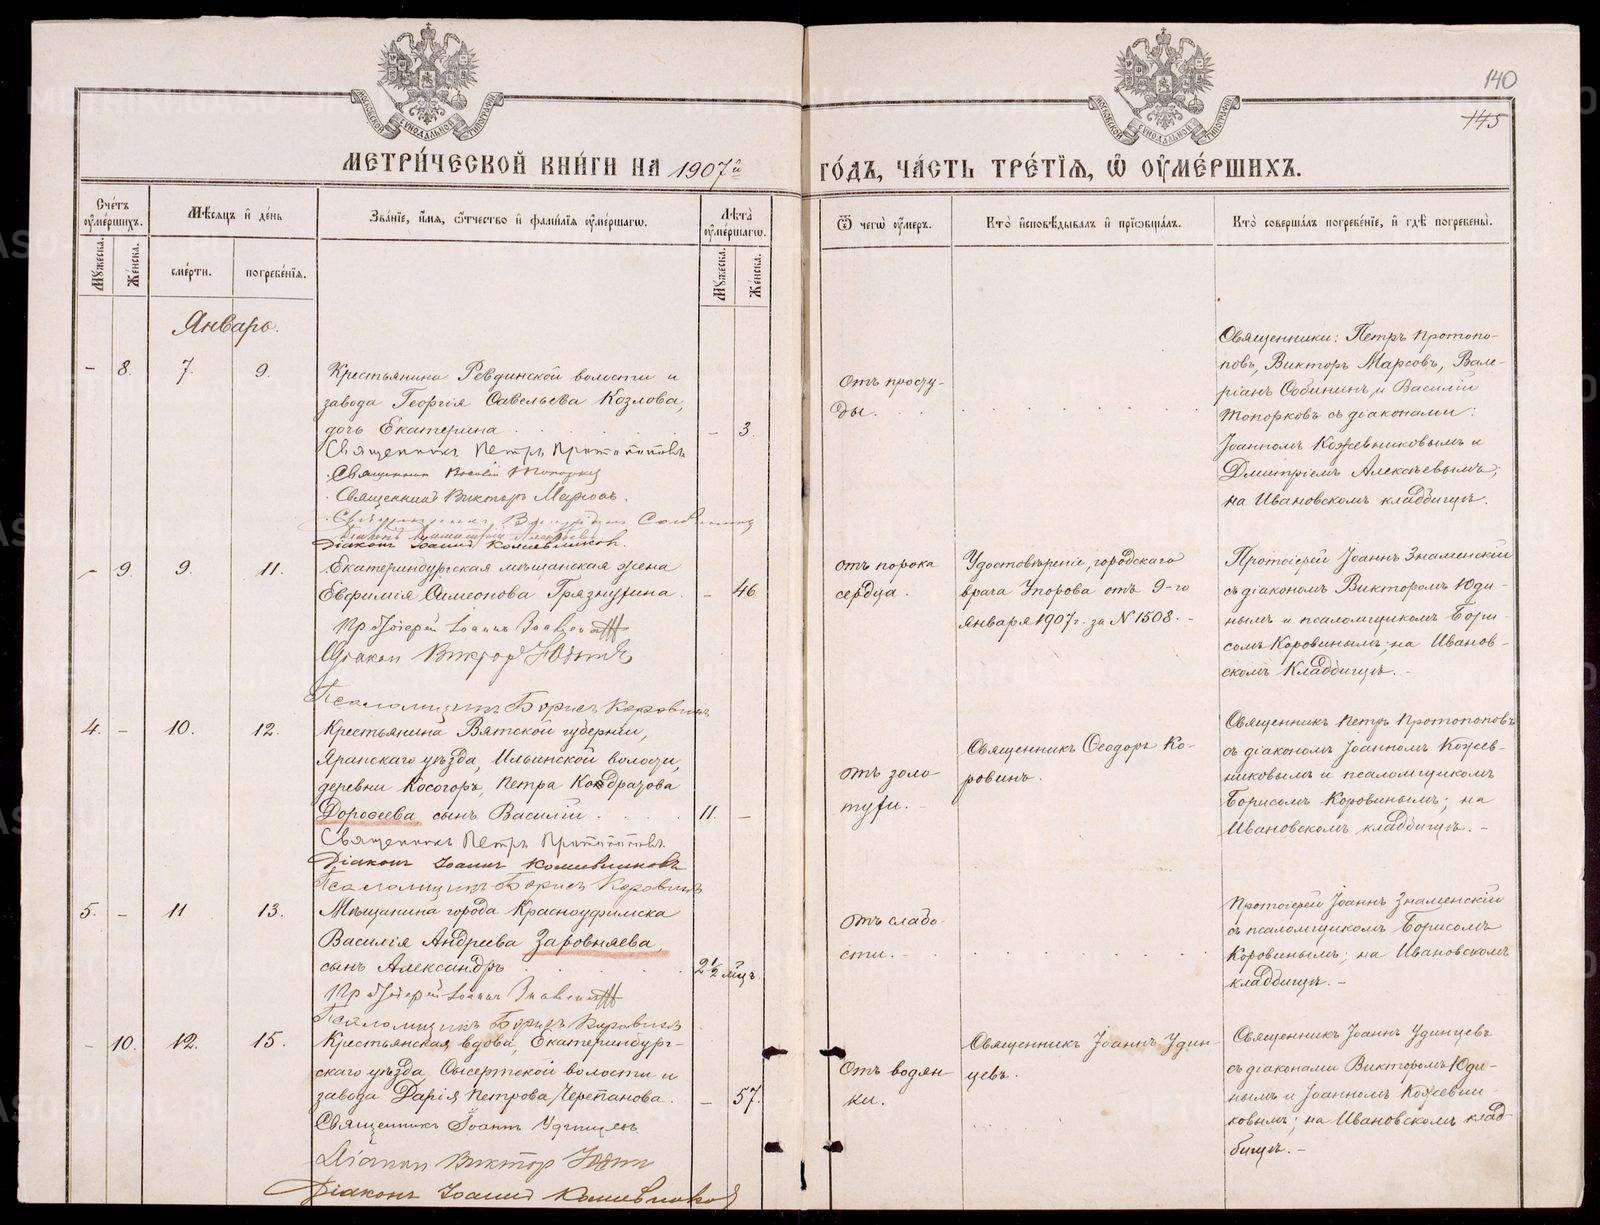 140
145
МОСКОВСКОЙ СѴНОДАЛЬНОЙ ТИПОГРАФІИ
МОСКОВСКОЙ СѴНОДАЛЬНОЙ ТИПОГРАФІИ
МЕТРИ́ЧЕСКОЙ КНИ́ГИ НА 1907й ГО́ДЪ, ЧА́СТЬ ТРЕ́ТІѦ, Ѡ҆ ОУ҆МЕ́РШИХЪ.
Сче́тъ оу҆ме́ршихъ.
Мꙋ́жеска.
Же́нска.
Мѣ́сѧцъ и҆ де́нь
сме́рти.
погребе́нїѧ.
Зва́нїе, и҆́мѧ, ѻ҆́тчество и҆ фами́лїѧ оу҆ме́ршагѡ.
Лѣ́та оу҆ме́ршагѡ.
Мꙋ́жеска.
Же́нска.
Ѿ чегѡ̀ оу҆́меръ.
Кто̀ и҆сповѣ́дывалъ и҆ прїѡбща́лъ.
Кто̀ соверша́лъ погребе́нїе, и҆ гдѣ̀ погребены̀.
Январь.
– 8. 7. 9.
Крестьянина Ревдинской волости и
завода Георгія Савельева Козлова,
дочь Екатерина
– 3.
Священникъ Петръ Протопоповъ
Священникъ Василій Топорковъ
Священникъ Викторъ Марсовъ.
Діаконъ Іоаннъ Кожевниковъ.
Отъ просту-
ды.
Священники: Петръ Протопо-
повъ, Викторъ Марсовъ, Вале-
ріанъ Собининъ и Василій
Топорковъ съ діаконами:
Іоанномъ Кожевниковымъ и
Дмитріемъ Алексѣевымъ;
на Ивановскомъ кладбищѣ.
– 9. 9. 11.
Екатеринбургская мѣщанская жена
Евфимія Симеонова Грязнухина.
– 46
Протоіерей Іоаннъ Знаменскій
Діаконъ Викторъ Юдинъ
Псаломщикъ Борисъ Коровинъ
отъ порока
сердца.
Удостовѣреніе, городскаго
врача Упорова отъ 9-го
января 1907 г. за N 1508. –
Протоіерей Іоаннъ Знаменскій
съ діакономъ Викторомъ Юди-
нымъ и псаломщикомъ Бори-
сомъ Коровинымъ; на Иванов-
скомъ Кладбищѣ. –
4. – 10. 12.
Крестьянина Вятской губерніи,
Яранскаго уѣзда, Ильинской волости,
деревни Косогоръ, Петра Кондратова
Дорофеева сынъ Василій
11. –
Священникъ Петръ Протопоповъ.
Діаконъ Іоаннъ Кожевниковъ
Псаломщикъ Борисъ Коровинъ
отъ золо-
тухи. –
Священникъ Ѳеодоръ Ко-
ровинъ.
Священникъ Петръ Протопоповъ
съ діакономъ Іоанномъ Кожев-
никовымъ и псаломщикомъ
Борисомъ Коровинымъ; на
Ивановскомъ кладбищѣ. –
5. – 11 13.
Мѣщанина города Красноуфимска
Василія Андреева Заровняева,
сынъ Александръ
2½ мѣц.
Протоіерей Іоаннъ Знаменскій
Псаломщикъ Борисъ Коровинъ
отъ слабо-
сти. –
Протоіерей Іоаннъ Знаменскій
съ псаломщикомъ Борисомъ
Коровинымъ; на Ивановскомъ
кладбищѣ. –
– 10. 12. 15.
Крестьянская вдова, Екатеринбург-
скаго уѣзда Сысертской волости и
завода Дарія Петрова Черепанова.
– 57.
Священникъ Іоаннъ Удинцевъ
Діаконъ Викторъ Юдинъ
Діаконъ Іоаннъ Кожевниковъ
Отъ водян-
ки.
Священникъ Іоаннъ Удин-
цевъ.
Священникъ Іоаннъ Удинцевъ
съ діаконами Викторомъ Юди-
нымъ и Іоанномъ Кожевни-
ковымъ; на Ивановскомъ клад-
бищѣ. –